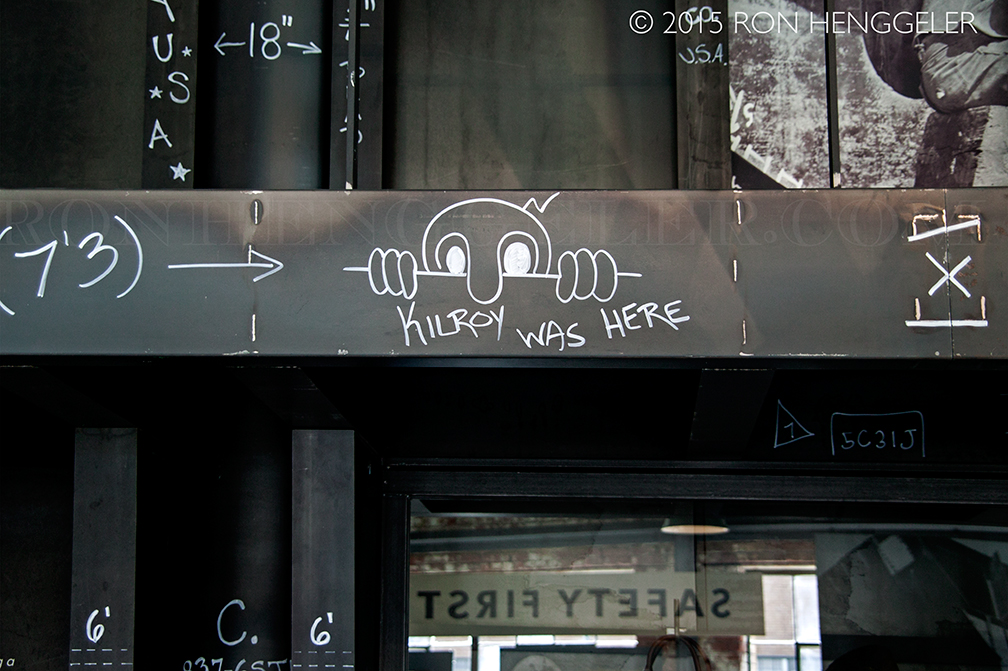 © 2015 RON HENGGELER
U.S.A.
U
S
A
18"
U.S.A.
RON HENGGELER.COM
(7'3)
KILROY WAS HERE
X
1
5C31J
SAFETY FIRST
6'
C.
6'